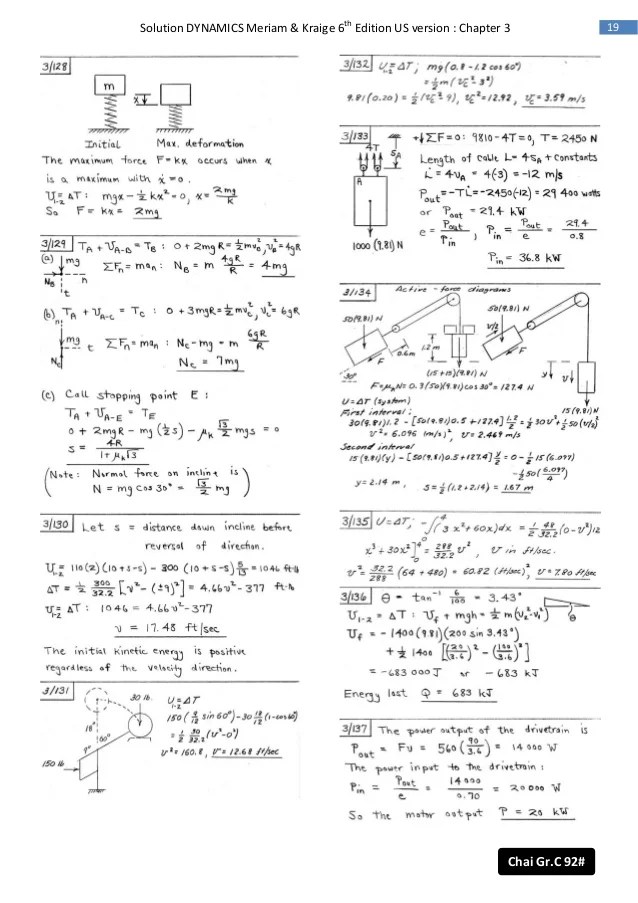 Solution DYNAMICS Meriam & Kraige 6th Edition US version : Chapter 3
19
3/128
m
x
Initial Max. deformation
The maximum force F = kx occurs when x
is a maximum with ẋ = 0.
U₁₋₂ = ΔT : mgx - ½ kx² = 0, x = 2mg/k
So F = kx = 2mg
3/129 T_A + U_A-B = T_B : 0 + 2mgR = ½mv_B², v_B² = 4gR
(a) mg
N_B n
t
ΣF_n = ma_n : N_B = m 4gR/R = 4mg
(b) T_A + U_A-C = T_C : 0 + 3mgR = ½mv_C², v_C² = 6gR
n
mg t
N_C
ΣF_n = ma_n : N_C - mg = m 6gR/R
N_C = 7mg
(c) Call stopping point E :
T_A + U_A-E = T_E
0 + 2mgR - mg(½s) - μ_k √3/2 mgs = 0
s = 4R/(1 + μ_k√3)
(Note : Normal force on incline is
N = mg cos 30° = √3/2 mg)
3/130 Let s = distance down incline before
reversal of direction.
ΔT = ½ 300/32.2 [v² - (±9)²] = 4.66v² - 377 ft-lb
U₁₋₂ = ΔT : 1046 = 4.66v² - 377
v = 17.48 ft/sec
The initial kinetic energy is positive
regardless of the velocity direction.
3/131
30 lb
18"
60°
9"
150 lb
U₁₋₂ = ΔT
= ½ 30/32.2 (v² - 0²)
v² = 160.8, v = 12.68 ft/sec
3/132 U₁₋₂ = ΔT ; mg(0.8 - 1.2 cos 60°)
= ½m(v_C² - 3²)
9.81(0.20) = ½(v_C² - 9), v_C² = 12.92, v_C = 3.59 m/s
3/133
4T
S_A
A
1000 (9.81) N
+↓ΣF = 0 : 9810 - 4T = 0, T = 2450 N
Length of cable L = 4s_A + constants
L̇ = 4v_A = 4(-3) = -12 m/s
P_out = -TL̇ = -2450(-12) = 29 400 watts
or P_out = 29.4 kW
e = P_out/P_in , P_in = P_out/e = 29.4/0.8
P_in = 36.8 kW
3/134 Active - force diagrams
50(9.81) N
50(9.81) N
v/2
F
0.6m
1.2 m
30°
F
y
v
(15+15)(9.81) N
15(9.81) N
F = μ_k N = 0.3(50)(9.81) cos 30° = 127.4 N
U = ΔT (system)
First interval :
30(9.81)1.2 - [50(9.81)0.5 + 127.4] 1.2/2 = ½ 30v² + ½ 50(v/2)²
v² = 6.096 (m/s)², v = 2.469 m/s
Second interval
15(9.81)(y) - [50(9.81)0.5 + 127.4] y/2 = 0 - ½ 15(6.097)
- ½ 50 (6.097/4)
y = 2.14 m, s = ½(1.2 + 2.14) = 1.67 m
3/135 U = ΔT ; -∫₀⁴ (3x² + 60x)dx = ½ 48/32.2 (0 - v²)12
x³ + 30x²]₀⁴ = 288/32.2 v², v in ft/sec.
v² = 32.2/288 (64 + 480) = 60.82 (ft/sec)², v = 7.80 ft/sec
3/136 θ = tan⁻¹ 6/100 = 3.43°
θ
U₁₋₂ = ΔT : U_f + mgh = ½ m(v₂² - v₁²)
U_f = - 1400(9.81)(200 sin 3.43°)
= -683 000 J or - 683 kJ
Energy lost Q = 683 kJ
3/137 The power output of the drivetrain is
P_out = Fv = 560 (90/3.6) = 14 000 W
The power input to the drivetrain :
P_in = P_out/e = 14 000/0.70 = 20 000 W
So the motor output P = 20 kW
Chai Gr.C 92#